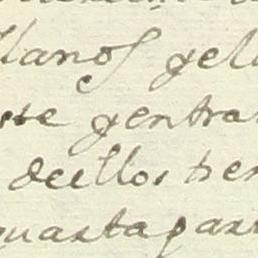 llanos gell
ste gentra
deellos tien
quarta par